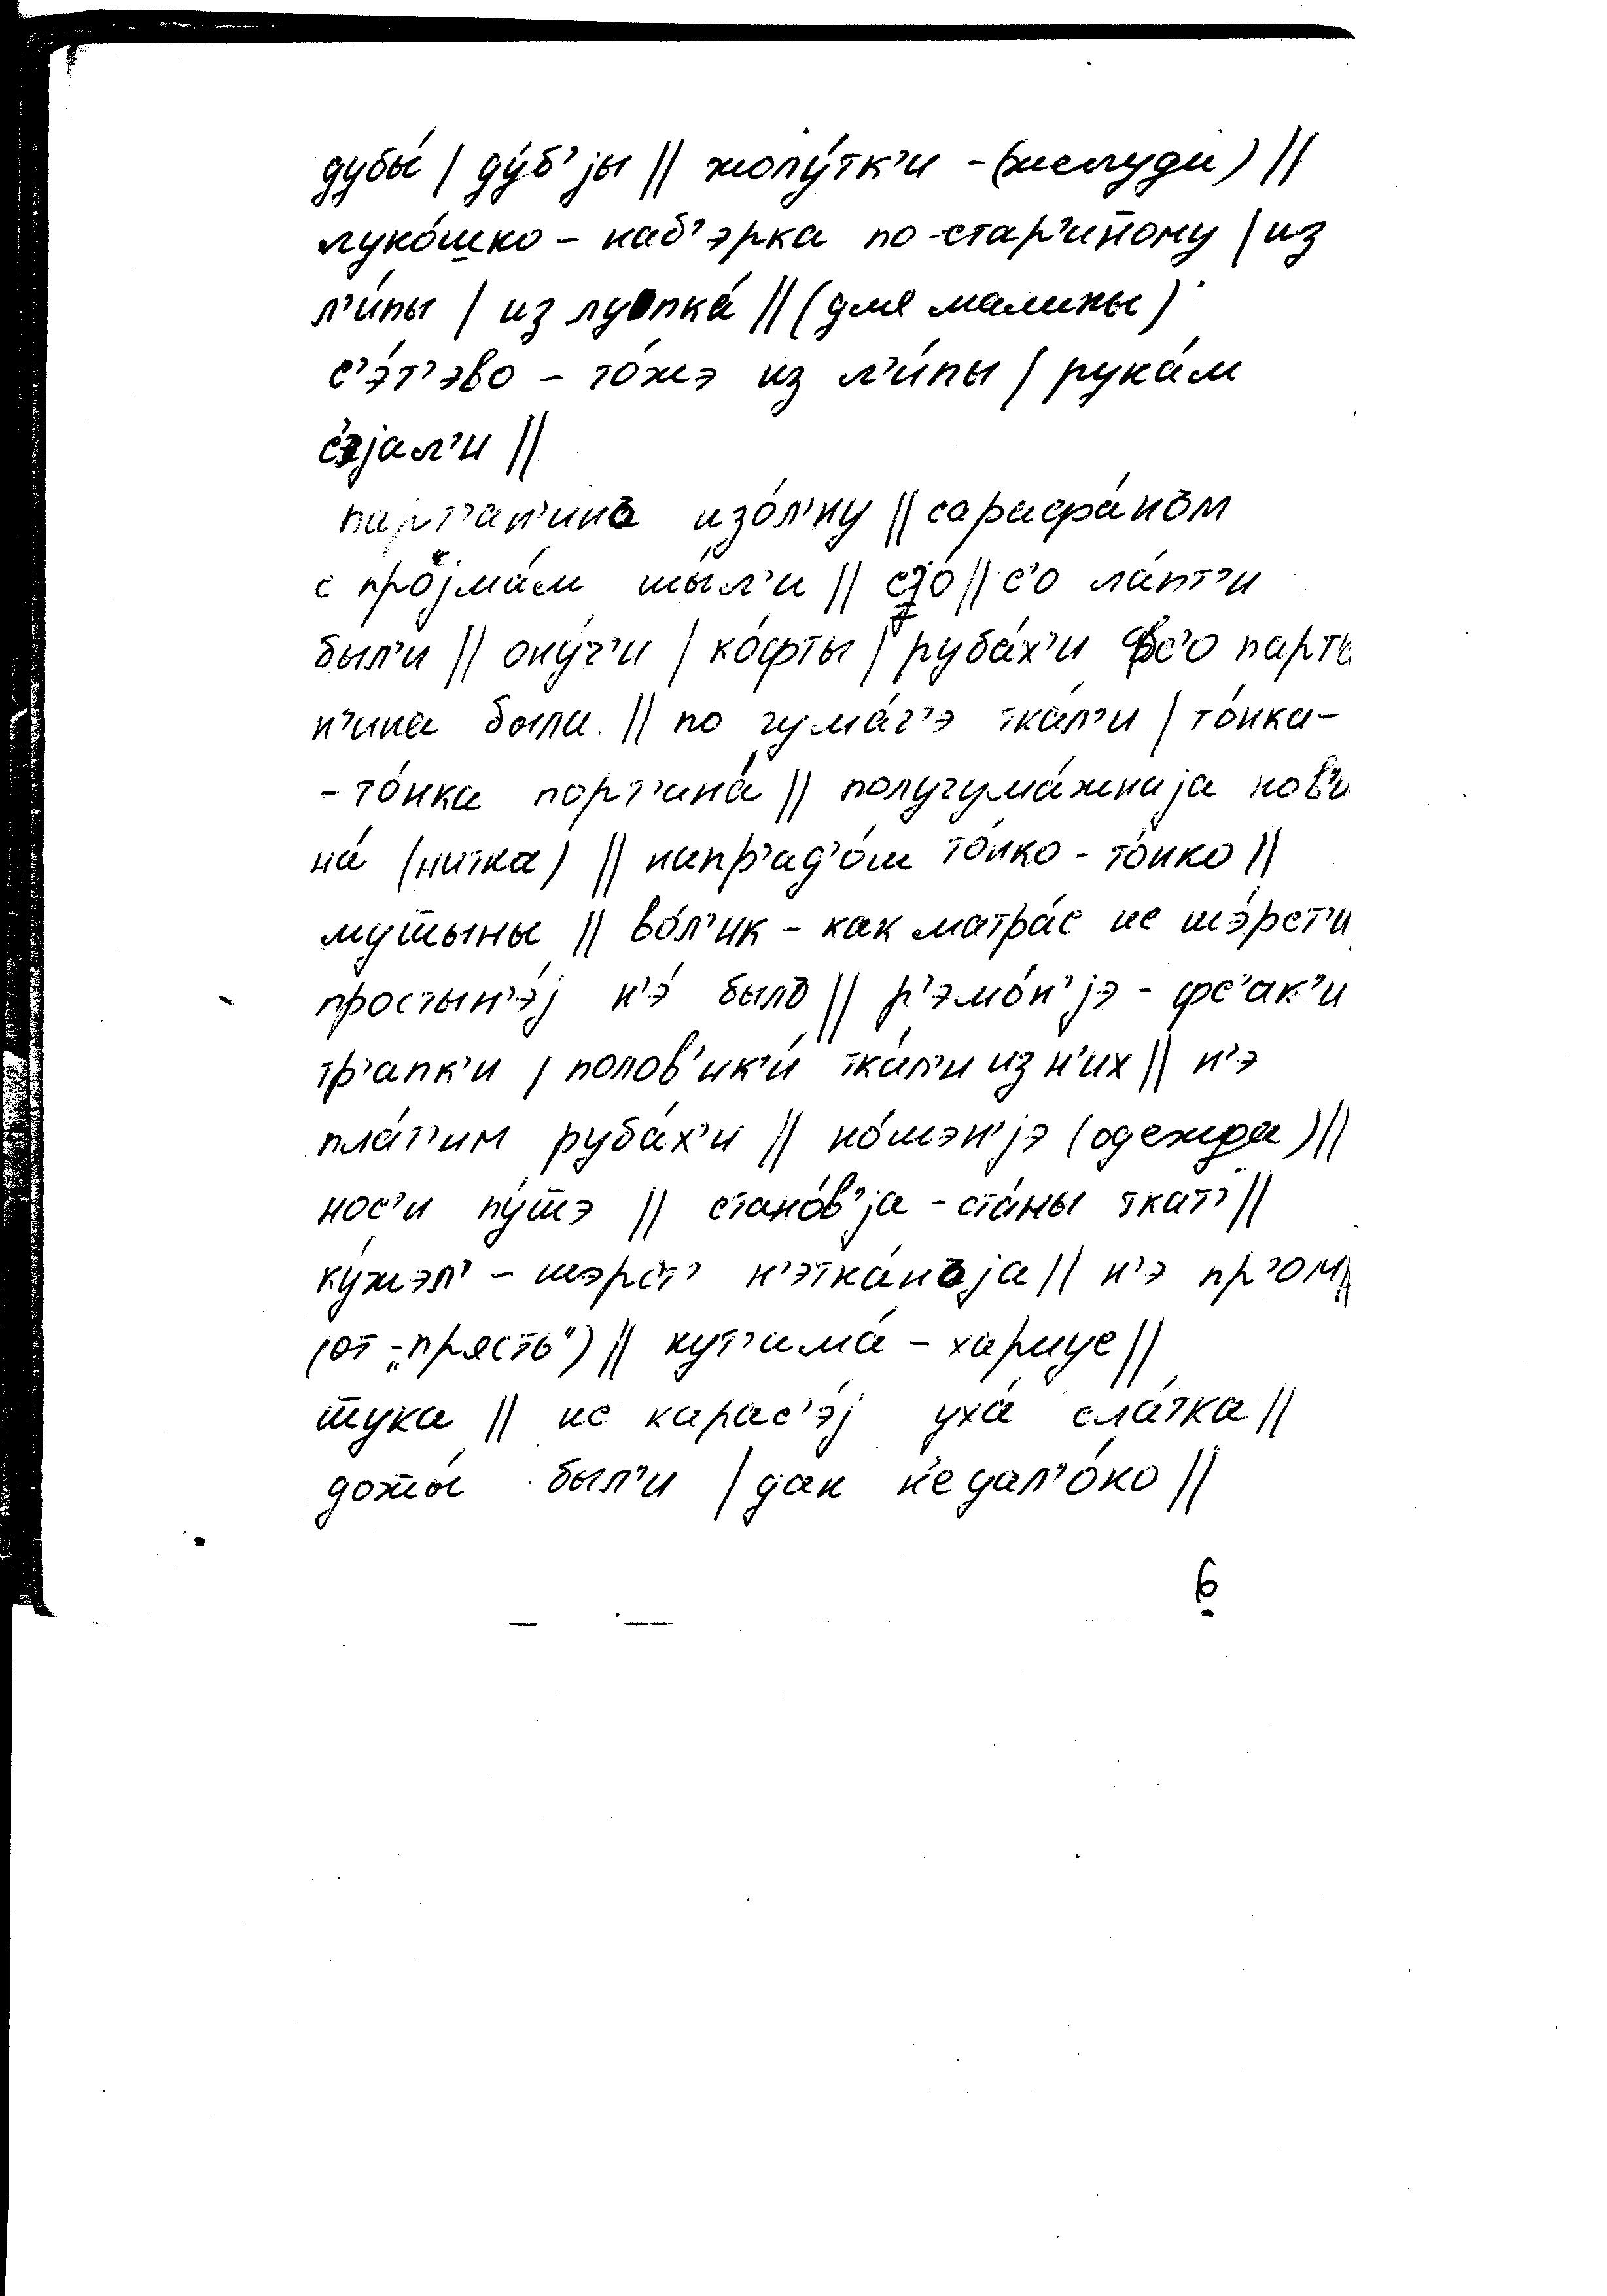 дубы́ | ду́б’jы || жолу́тк’и – (желуди) ||
луко́шко – наб’эрка по-стар’и́ному | из
л’и́пы | из лубка́ || (для малины)
с’э́т’эво – то́жэ из л’и́пы | рука́м
с’эjал’и ||
парт’ан’ина изо́л’ну || сарафа́нъм
с про́jма́м шы́л’и || с’о ла́пт’и
был’и || ону́ч’и | ко́фты | руба́х’и фс’о парт’а
н’ина была || по гума́г’э тка́л’и | то́нка–
–то́нка порт’ина́ || полугума́жнаjа нов’и
на́ (нитка) || напр’ад’о́ш то́нко – то́нко ||
мутыны || во́л’ик – как матра́с ис шэ́рст’и
простын’э́j н’э́ былъ || р’эмо́н’jэ – фс’ак’и
тр’апк’и | полов’ик’и́ тка́л’и из н’их || н’э
пла́т’им руба́х’и || но́шэн’jэ (одежда) ||
нос’и пу́тэ || стано́в’jа – ста́ны ткат’ ||
ку́жэл’ – шэрст’ н’этка́нъjа || н’э пр’ом ||
(от „прясть“) || кут’има́ – хариус ||
шука || ис карас’э́j уха́ сла́тка ||
дожжы́ был’и | дак н’едал’о́ко ||
6